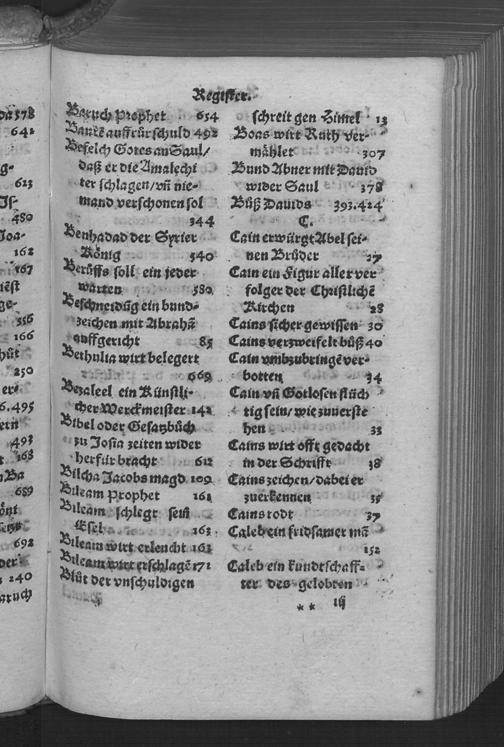 da 378
641
g-
613
Js-
480
Joa-
162
167
ge-
356
166
hüt
250
er-
6.495
ern
493
368
n Ba
689
692
der
240
aruch
Register.
Baruch Prophet 654
Baurē auffrür schuld 492
Befelch Gotes an Saul/
daß er die Amalechi
ter schlagen/ vñ nie-
mand verschonen sol
344
Benhadad der Syrier
König 540
Berüffs soll ein jeder
warten 580
Beschneidūg ein bund-
zeichen mit Abrahā
auffgericht 85
Bethulia wirt belegert
669
Bezaleel ein Künstli-
cher Werckmeister 142
Bibel oder Gesatzbůch
zu Josia zeiten wider
herfür bracht 612
Bilcha Jacobs magd 109
Bileam Prophet 161
Bileam schlegt sein
Esel 163
Bileam wirt erleucht 163
Bileam wirt erschlagē 171
Blůt der vnschuldigen
schreit gen Himel 13
Boas wirt Ruth ver-
mählet 307
Bund Abner mit Dauid
wider Saul 378
Bůß Dauids 393.424
C.
Cain erwürgt Abel sei-
nen Brůder 27
Cain ein Figur aller ver
folger der Christlichē
Kirchen 28
Cains sicher gewissen 30
Cains verzweifelt bůß 40
Cain vmbzubringē ver-
botten 34
Cain vñ Gotlosen flüch
tig sein/ wie zuuerste
hen 33
Cains wirt offt gedacht
in der Schrifft 38
Cains zeichen/ dabei er
zuerkennen 35
Cains todt 37
Caleb ein fridsamer mā
152
Caleb ein kundtschaff-
ter des gelobten
** iij